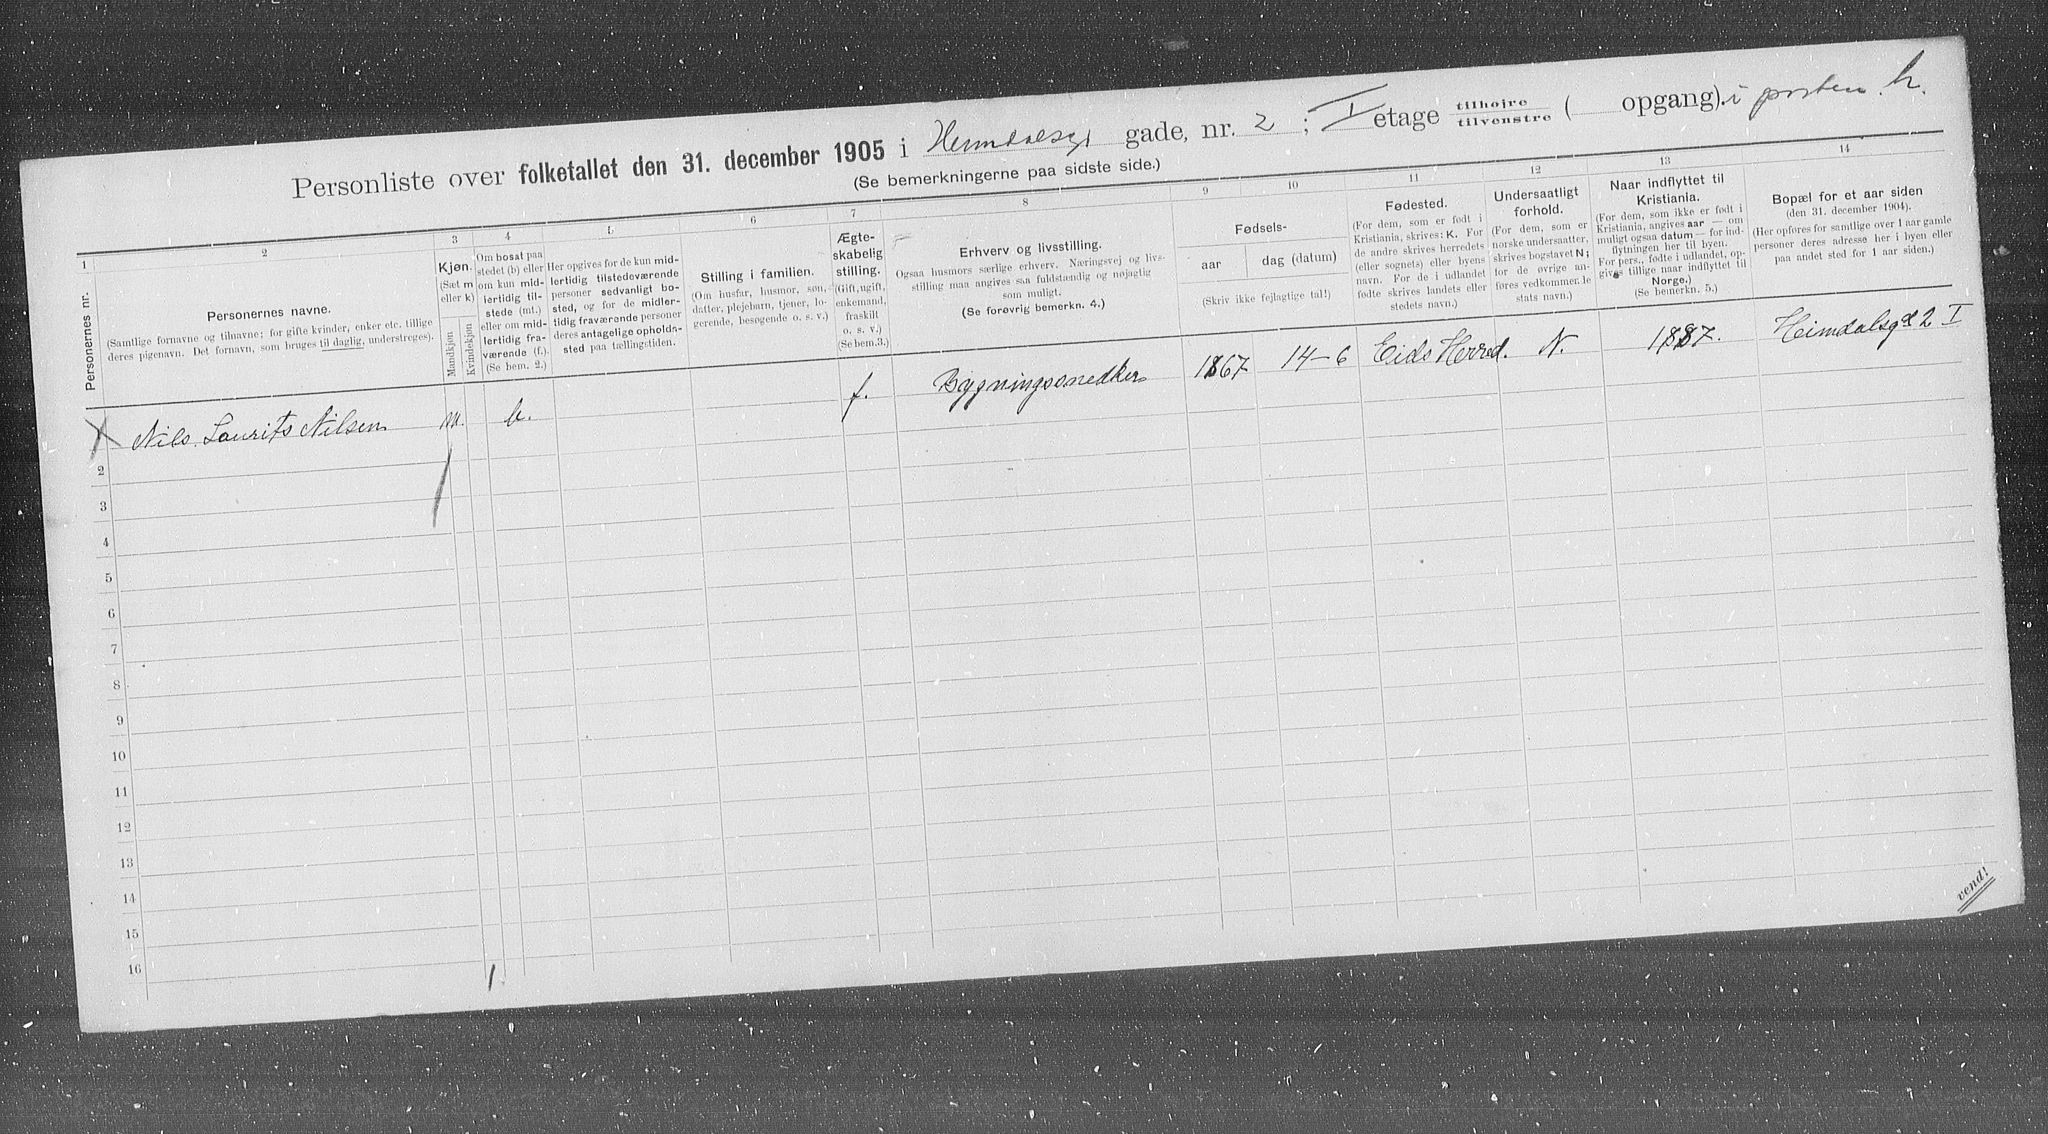 Personliste over folketallet den 31. december 1905 i Heimdalsgt gade, nr. 2 ; I etage tilhøjre / tilvenstre ( opgang). i porten h.
(Se bemerkningerne paa sidste side.)
1 2 3 4 5 6 7 8 9 10 11 12 13 14
Personernes nr.
Personernes navne.
(Samtlige fornavne og tilnavne; for gifte kvinder, enker etc. tillige
deres pigenavn. Det fornavn, som bruges til daglig, understreges).
Kjøn.
(Sæt m
eller k)
Mandkjøn
Kvindekjøn
Om bosat paa
stedet (b) eller
om kun mid-
lertidig til-
stede (mt.)
eller om mid-
lertidig fra-
værende (f.)
(Se bem. 2.)
Her opgives for de kun mid-
lertidig tilstedeværende
personer sedvanlig bo-
sted, og for de midler-
tidig fraværende personer
deres antagelige opholds-
sted paa tællingstiden.
Stilling i familien.
(Om husfar, husmor, søn,
datter, plejebarn, tjener, lo-
gerende, besøgende o. s. v.)
Ægte-
skabelig
stilling.
(Gift, ugift,
enkemand,
fraskilt
o. s. v.)
(Se bem.3.)
Erhverv og livsstilling.
Ogsaa husmors særlige erhverv. Næringsvej og livs-
stilling maa angives saa fuldstændig og nøjagtig
som muligt.
(Se forøvrig bemerkn. 4.)
Fødsels-
aar
dag (datum)
(Skriv ikke fejlagtige tal!)
Fødested.
(For dem, som er født i
Kristiania, skrives: K. For
de andre skrives herredets
(eller sognets) eller byens
navn. For de i udlandet
fødte skrives landets eller
stedets navn.)
Undersaatligt
forhold.
(For dem, som er
norske undersaatter,
skrives bogstavet N;
for de øvrige an-
føres vedkommende
stats navn.)
Naar indflyttet til
Kristiania.
(For dem, som ikke er født i
Kristiania, angives aar — om
muligt ogsaa datum — for ind-
flytningen her til byen.
For pers., fødte i udlandet, op-
gives tillige naar indflyttet til
Norge.)
(Se bemerkn. 5.)
Bopæl for et aar siden
(den 31. december 1904).
(Her opføres for samtlige over 1 aar gamle
personer deres adresse her i byen eller
paa andet sted for 1 aar siden.)
Nils Laurits Nilsen m. b. f. Bygningssnedker 1867 14-6 Eids Herred. N. 1887. Heimdalsgt 2 I
2
3
4
5
6
7
8
9
10
11
12
13
14
15
16
1.
vend!